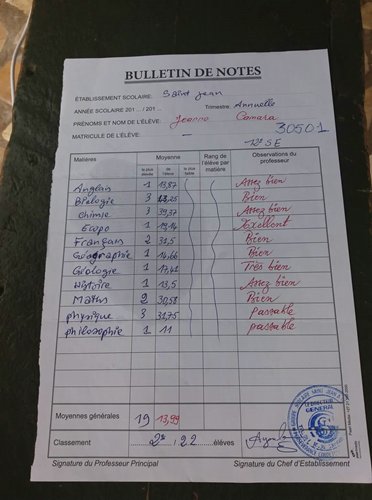 BULLETIN DE NOTES
ÉTABLISSEMENT SCOLAIRE: Saint Jean
ANNÉE SCOLAIRE 201 ... / 201 ... Trimestre: Annuelle
PRÉNOMS ET NOM DE L'ÉLÈVE: Jeanne Camara
MATRICULE DE L'ÉLÈVE: — 30501
12e SE
Matières Moyenne Rang de l'élève par matière Observations du professeur
la plus élevée de l'élève la plus faible
Anglais 1 13,87 Assez bien
Biologie 3 Bien
Chimie 3 39,37 Assez bien
1 19,14 Excellent
Français 2 31,5 Bien
Géographie 1 14,66 Bien
Géologie 1 17,41 Très bien
Histoire 1 13,5 Assez bien
Maths 2 30,58 Bien
physique 3 31,75 Passable
philosophie 1 11 passable
Moyennes générales 19 13,99
Classement 2e / 22 élèves
Signature du Professeur Principal Signature du Chef d'Établissement
LE DIRECTEUR GENERAL